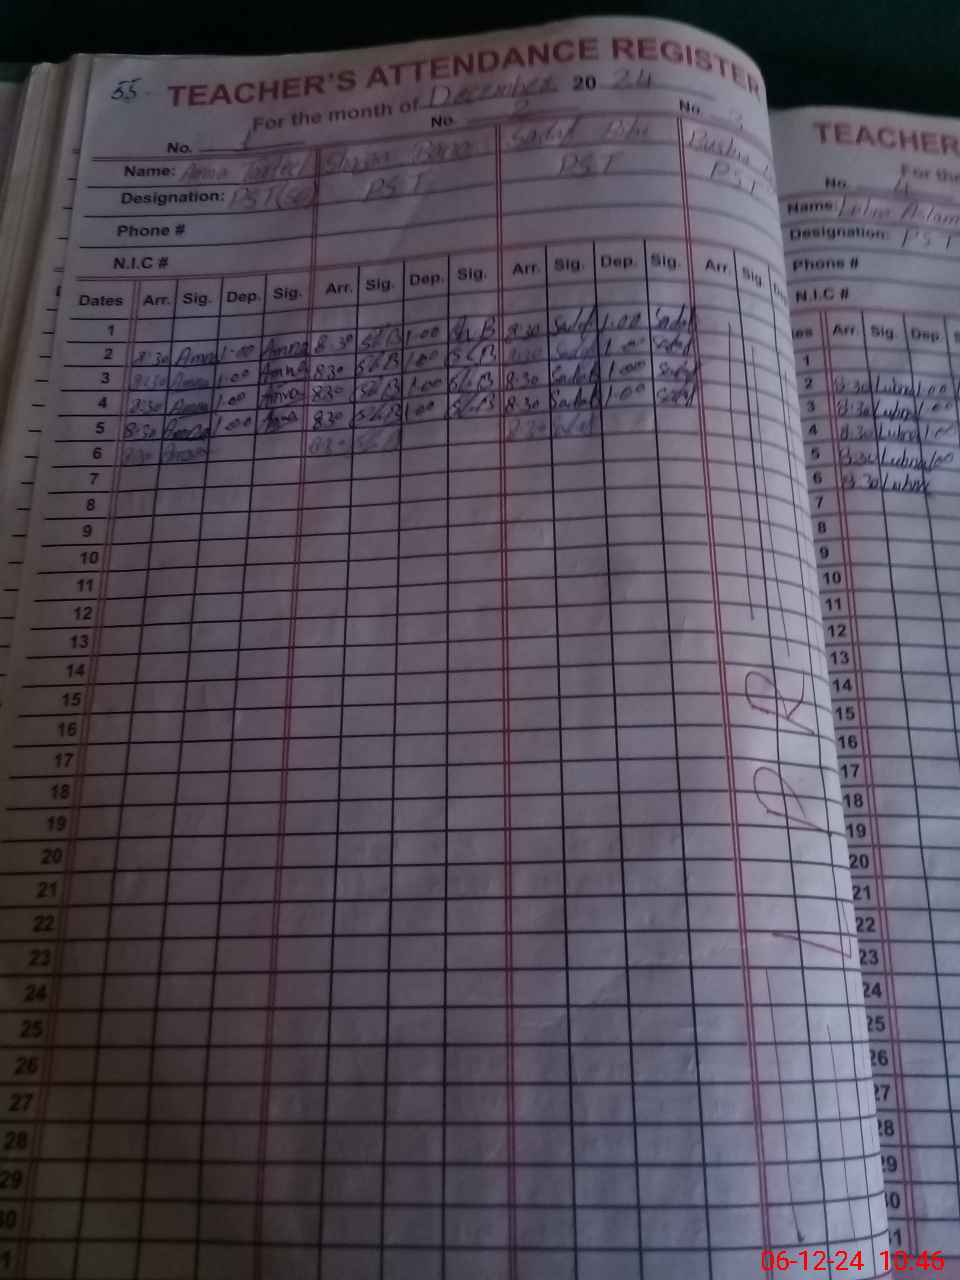 55-
TEACHER'S ATTENDANCE REGISTER
For the month of December 20 24
No. 1 No. 2 No. 3
Name: Amna Shazia Bano Sadaf Bushra
Designation: PST PST PST PST
Phone #
N.I.C #
Dates Arr. Sig. Dep. Sig. Arr. Sig. Dep. Sig. Arr. Sig. Dep. Sig. Arr. Sig. De
1
2 8:30 Amna 1:00 Amna 8:30 S/B 1:00 Sh B 8:30 Sadaf 1:00 Sadaf
3 8:30 Amna 1:00 Amna 8:30 S/B 1:00 S/B 8:30 Sadaf 1:00 Sadaf
4 8:30 Amna 1:00 Amna 8:30 S/B 1:00 S/B 8:30 Sadaf 1:00 Sadaf
5 8:30 Amna 1:00 Amna 8:30 S/B 1:00 S/B 8:30 Sadaf 1:00 Sadaf
6 8:30 Amna 8:30 S/B 8:30 Sadaf
7
8
9
10
11
12
13
14
15
16
17
18
19
20
21
22
23
24
25
26
27
28
29
30
1
L P R
TEACHER
For the
No. 4
Name: Lubna Aslam
Designation: PST
Phone #
N.I.C #
es Arr. Sig. Dep. S
1
2 8:30 Lubna 1:00
3 8:30 Lubna 1:00
4 8:30 Lubna 1:00
5 8:30 Lubna 1:00
6 8:30 Lubna
7
8
9
10
11
12
13
14
15
16
17
18
19
20
21
22
23
24
25
26
27
28
29
30
31
06-12-24 10:46